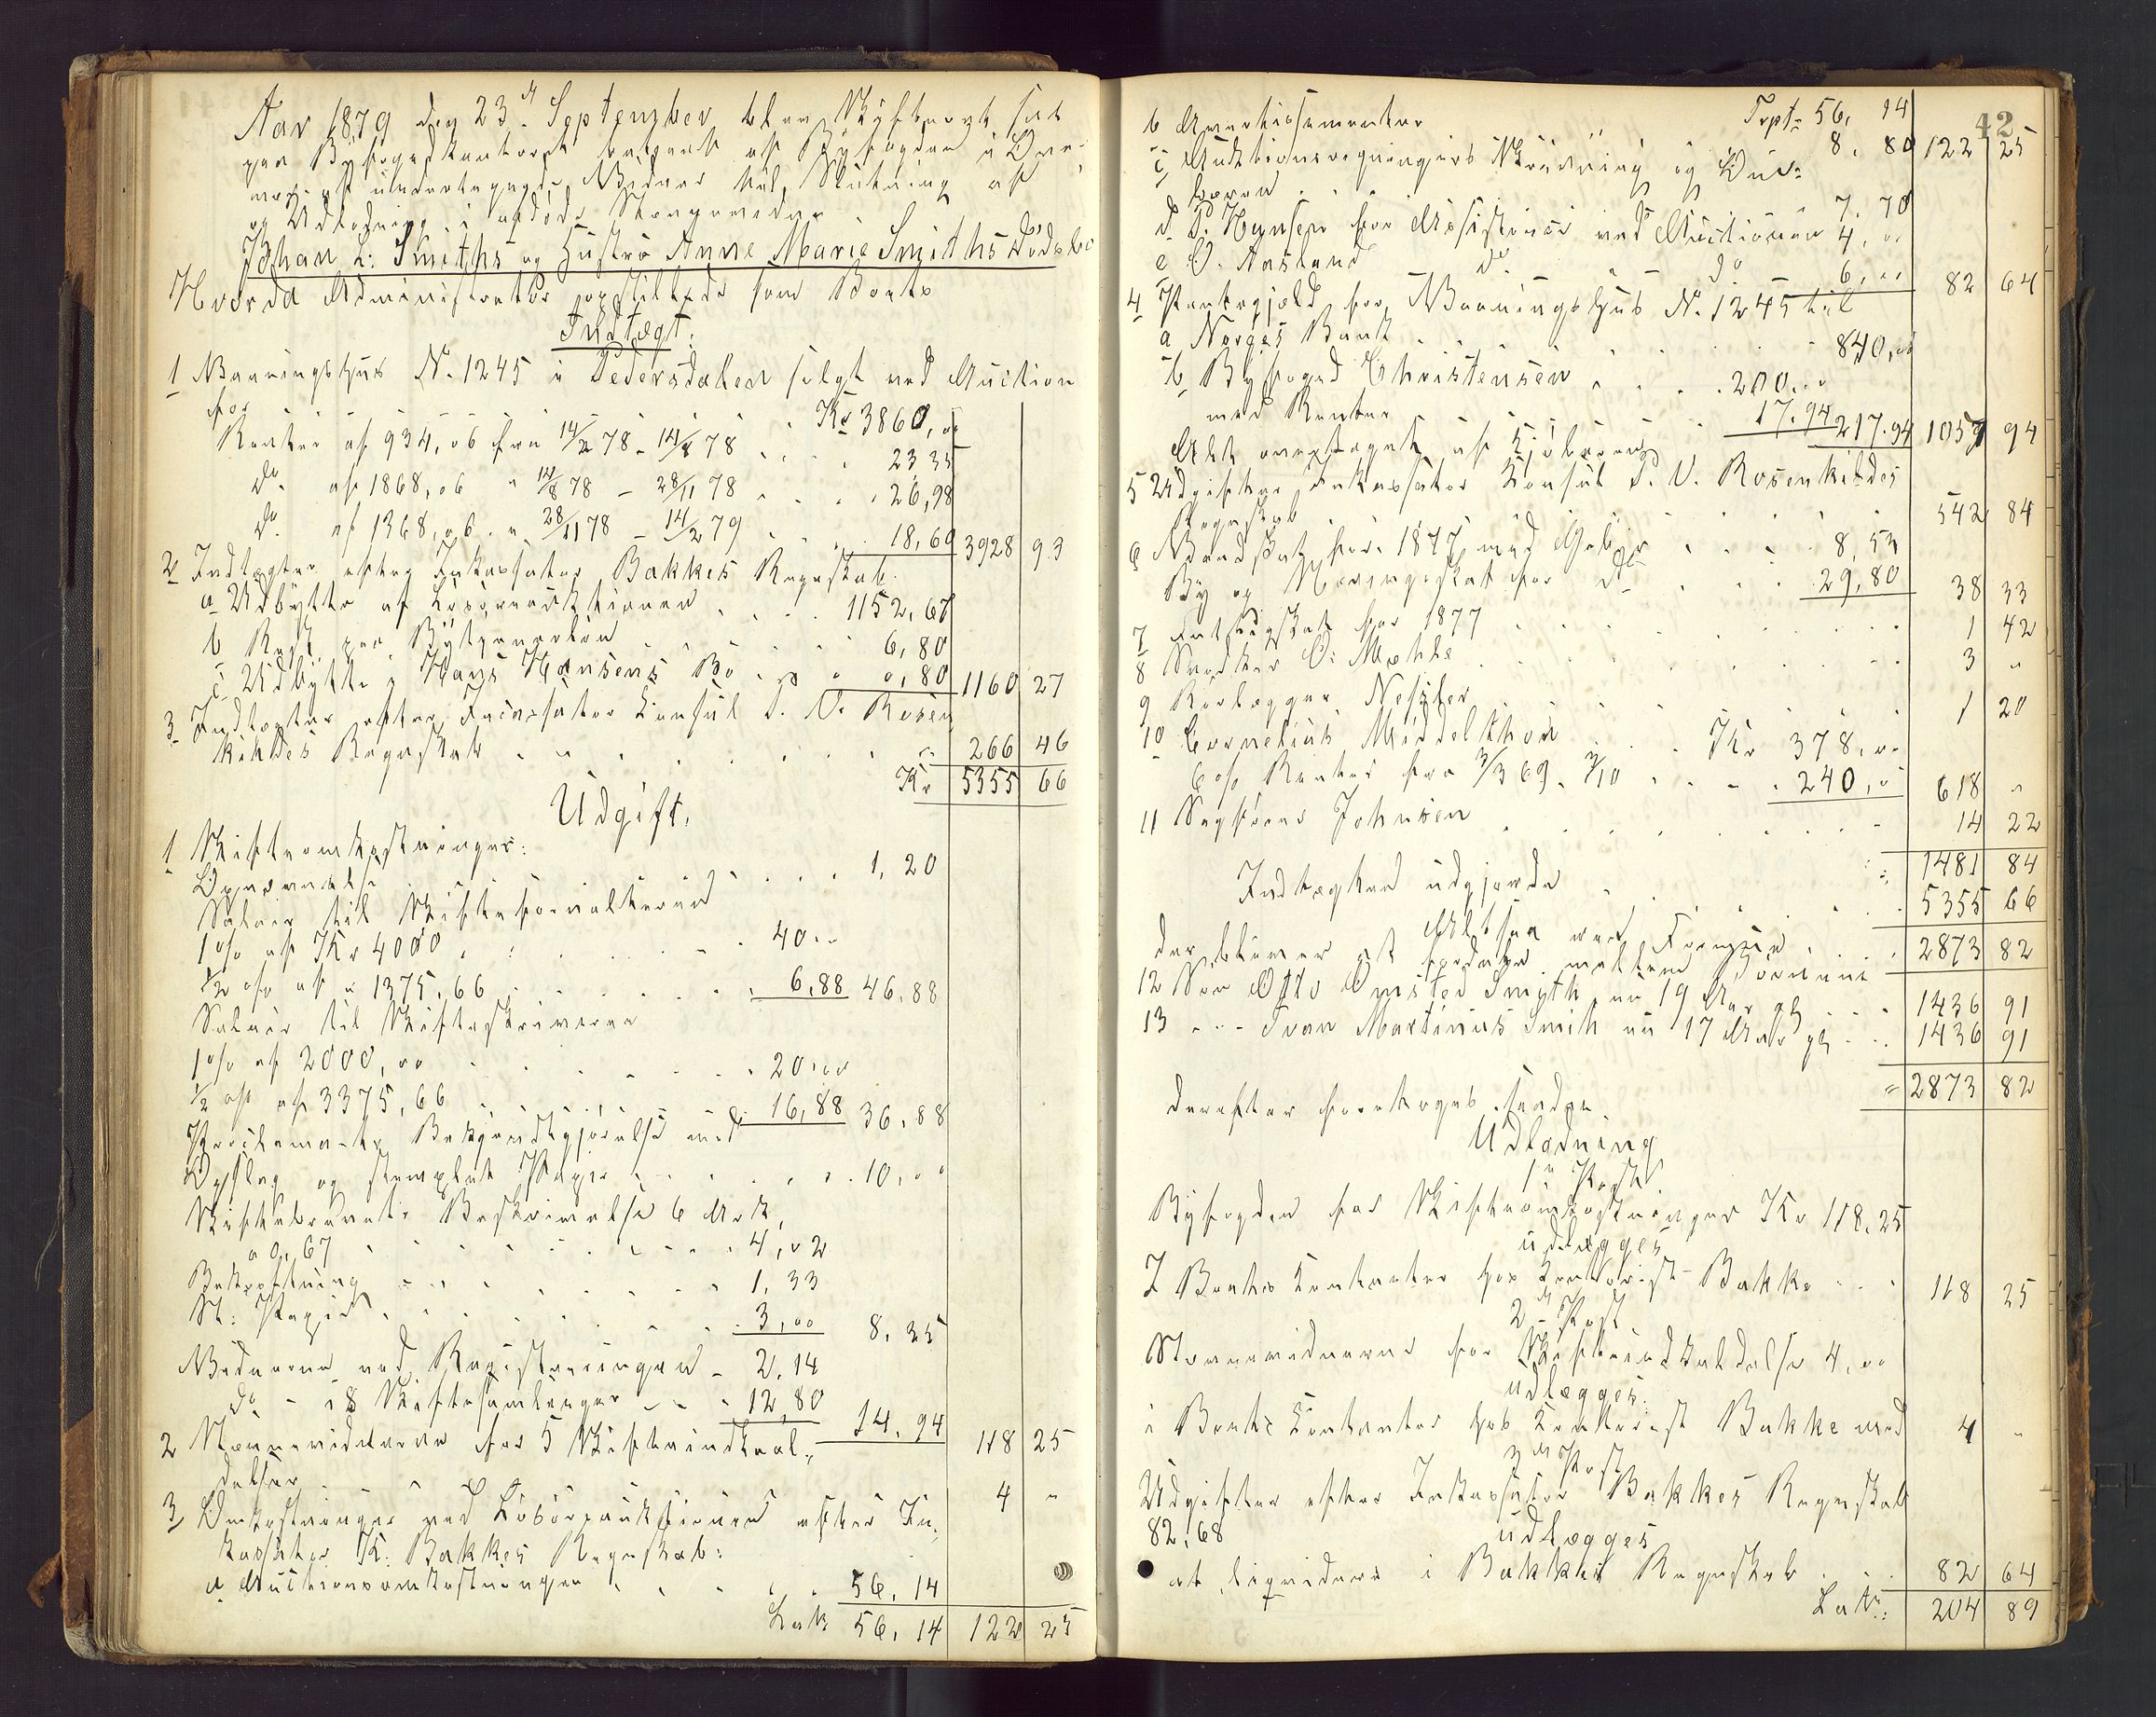 Aar 1879 den 23d September blev Skifteret sat
paa Byfogedkontoret betjent af Byfogden i Over-
vær af undertegnede Vidner til Slutning af
og Udlodning i afdøde Stuepige
Johan L: Smiths og Hustru Anne Marie Smiths Dødsbo
Hvorda Administrator opstillede som Boets
Indtægt:
1 Vaaningshus No. 1245 i Pedersdalen solgt ved Auction
for . . . Kr 3860,00
Renter af 934,06 fra 14/2 78 - 14/8 78 . . . 23,35
Do. af 1868,06 " 14/8 78 - 28/11 78 . . . 26,98
Do. af 1368,06 " 28/11 78 - 14/2 79 . . . 18,60 3928 93
2 Indtægter efter Inkassator Bakkes Regnskab.
a Udbytte af Løsøreauktionen . . . 1152,67
b Rest paa Bytjenesten . . . 6,80
c Udbytte i Hans Hansens Bo . . . 0,80 1160 27
3 Indtægter efter Incassator Konsul P. V. Rosen
kildes Regnskab . . . 266 46
Kr 5355 66
Udgift.
1 Skifteomkostninger:
1,20
Salair til Skifteforvalteren
1 o/o af Kr 4000 . . . 40..
1/2 o/o af " 1375,66 . . . 6,88 46,88
Salair til Skifteskriveren
1 o/o af 2000,00 . . . 20,00
1/2 o/o af 3375,66 . . . 16,88 36,88
Proclamaets Bekjendtgjørelse med
Opslag og stemplet Papir . . . 10,00
Skiftebrevets Beskrivelse 6 Ark
a 0,67 . . . 4,02
Bekræftning . . . 1,33
St: Papir . . . 3,00 8,35
Vidnerne ved Registreringen - 2,14
do - i 8 Skiftesamlinger - - 12,80
14,94 118 25
2 Stævnevidnerne for 5 Skifteindkal-
delser . . . 4 "
3 Omkostninger ved Løsøreauktionen efter In-
kassator K. Bakkes Regnskab:
a Auctionsomkostninger . . . 56,14
Lat. 56,14 122 25
42
Trpt. 56,14 122 25
b Avertissementer 8,80
c Auktionsregningens Skrivning og Ud-
7,70
d P. Hansen for Assistance ved Auctionen 4,00
e O. Aasland do do 6,00 82 64
4 Pantegjæld for Vaaningshus No. 1245 til
a Norges Bank . . . 840,00
b Byfoged Christensen . . . 200,00
med Renter 17.94 217.94 1057 94
Alt overtaget af Kjøberen
5 Udgifter Inkassator Konsul P. V. Rosenkildes
Regnskab . . . 542 84
6 Brandskat for 1877 med Gebyr . . . 8,53
By og Næringsskat for do . . . 29,80 38 33
7 Fattigskat for 1877 . . . 1 42
8 Snedker O: Mæhle . . . 3 "
9 Rørlægger Nessler . . . 1 20
10 Cornelius Middelthon . . . Kr 378,00
6 o/o Renter fra 3/3 69 - 3/10 . . . 240,00 618 "
11 Sagfører Johnsen . . . 14 22
1481 84
Indtægten udgjorde . . . 5355 66
Altsaa ved 2873 82
der blive at fordele mellem Børnene
12 Søn Otto Omsted Smyth nu 19 Aar gl . . . 1436 91
13 - - - Ivan Martinus Smith nu 17 Aar gl . . . 1436 91
= 2873 82
derefter foretoges saadan
Udlodning
1ste Post.
Byfogden for Skifteomkostninger Kr 118.25
udlægges
I Boets Contanter hos Kontorist Bakke . . . 118 25
2den Post
Stævnevidnerne for Skifteindkaldelse 4,00
udlægges:
i Boets Contanter hos Kontorist Bakke med 4 "
3die Post
Udgifter efter Inkassator Bakkes Regnskab
82,68
udlægges
at liqvidere i Bakkes Regnskab . . . 82 64
Latr: 204 89